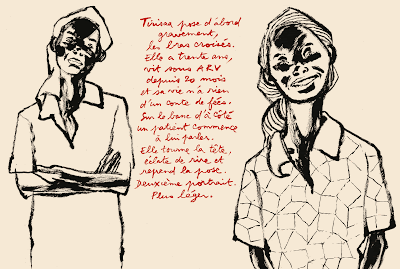 Tirisa pose d'abord
gravement,
les bras croisés.
Elle a trente ans,
vit sous ARV
depuis 20 mois
et sa vie n'a rien
d'un conte de fées.
Sur le banc d'à côté
un patient commence
à lui parler.
Elle tourne la tête,
éclate de rire et
reprend la pose.
Deuxième portrait.
Plus léger.